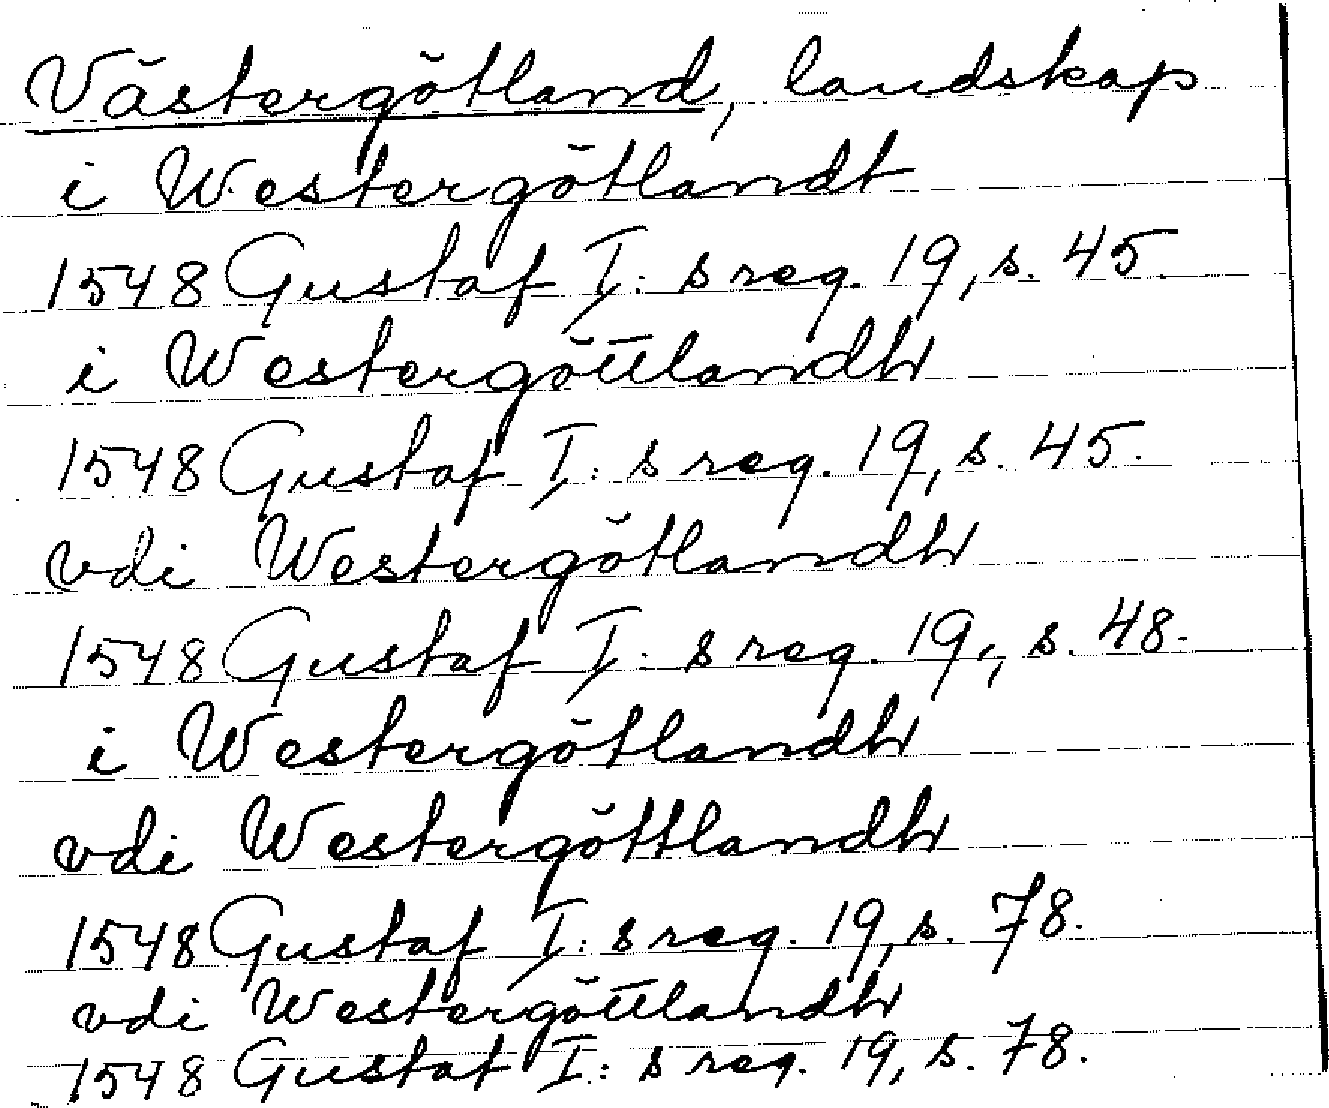 Västergötland, landskap
i Westergötlandt
1548 Gustaf I: s reg. 19, s. 45.
i Westergöttlandh
1548 Gustaf I: s reg. 19, s. 45.
vdi Westergötlandh
1548 Gustaf I: s reg. 19, s. 48.
i Westergötlandh
vdi Westergöttlandh
1548 Gustaf I: s reg. 19, s. 78.
vdi Westergöttlandh
1548 Gustaf I: s reg. 19, s. 78.